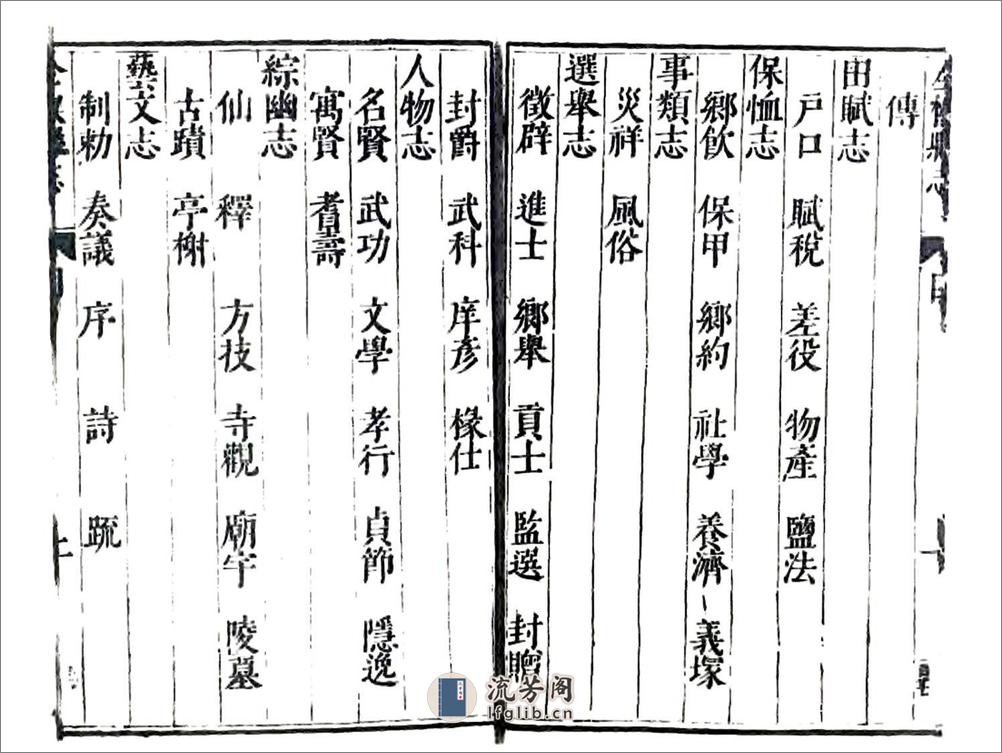 傳
田賦志
戶口 賦稅 差役 物產 鹽法
保恤志
鄉飲 保甲 鄉約 社學 養濟 義塚
事類志
災祥 風俗
選舉志
徵辟 進士 鄉舉 貢士 監選 封贈
封爵 武科 庠彥 椽仕
人物志
名賢 武功 文學 孝行 貞節 隱逸
寓賢 耆壽
綜幽志
仙 釋 方技 寺觀 廟宇 陵墓
古蹟 亭榭
藝文志
制勅 奏議 序 詩 䟽
流芳阁
lfglib.cn